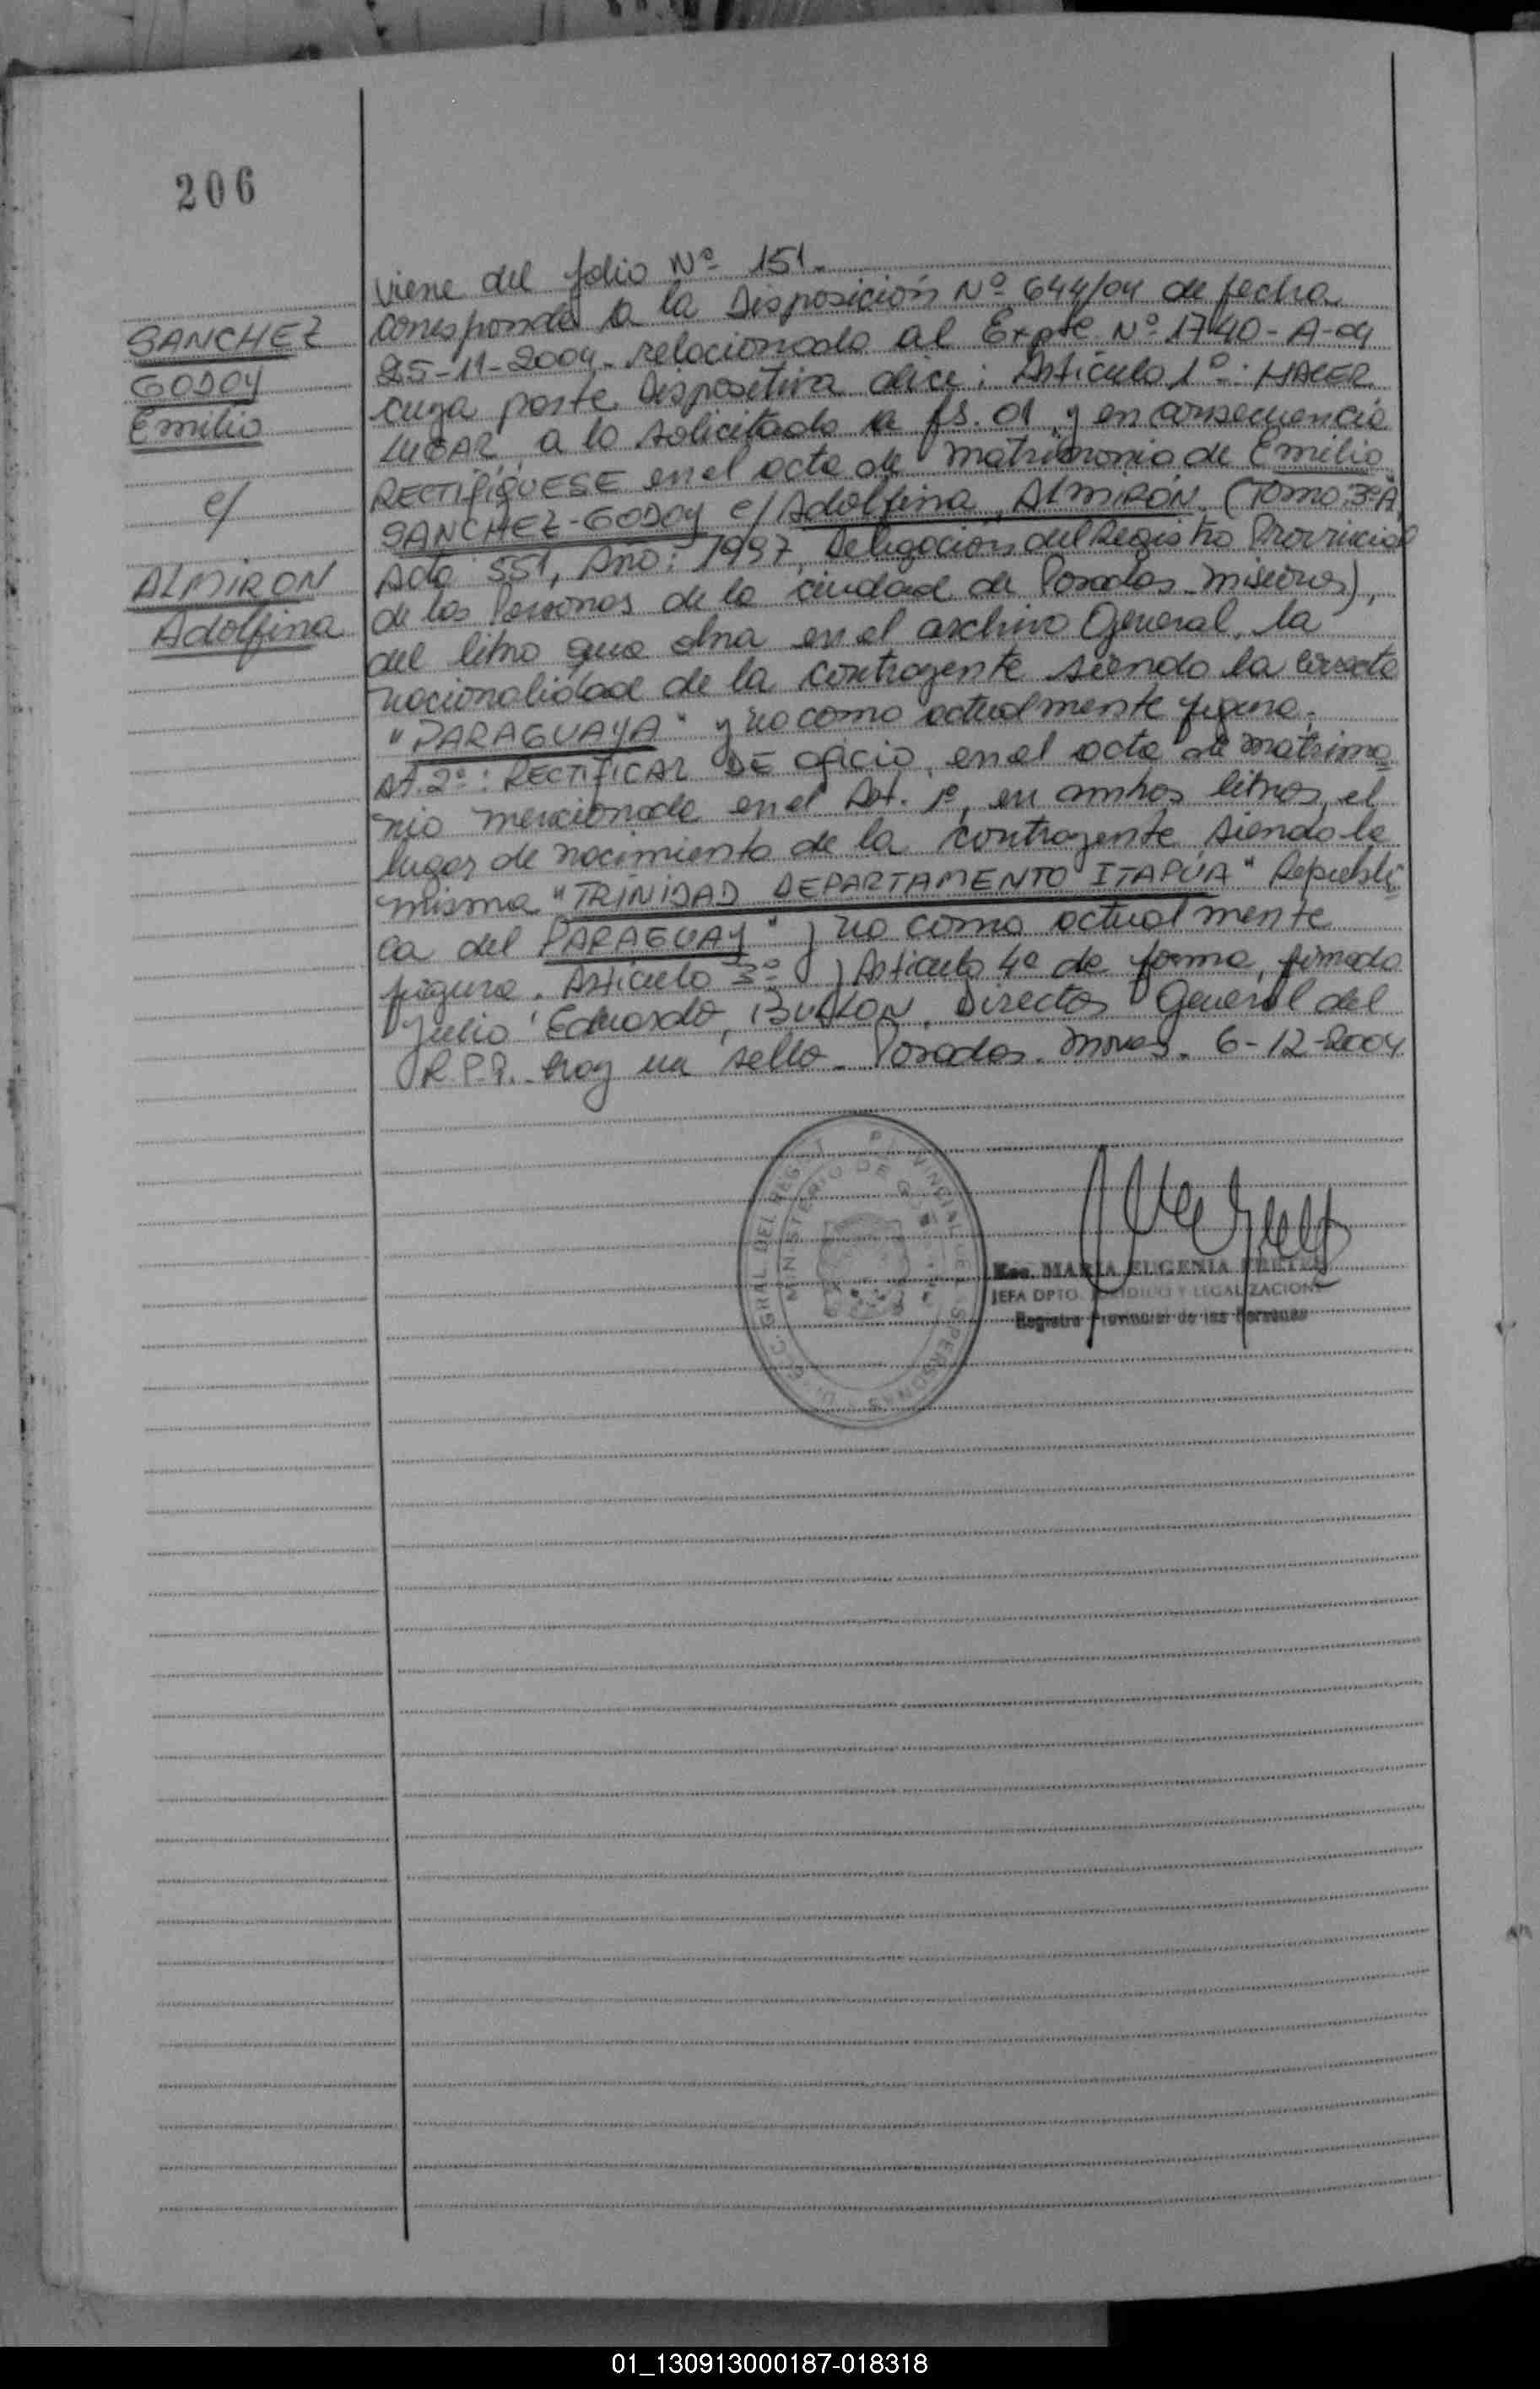 206
SANCHEZ
GODOY
Emilio
c/
ALMIRON
Adolfina
Viene del folio Nº 151.
Corresponde a la Disposición Nº 644/04 de fecha
25-11-2004. relacionado al Expte Nº 1740-A-04
cuya parte Dispositiva dice: Artículo 1º: HACER
LUGAR a lo solicitado a fs. 01, y en consecuencia
RECTIFIQUESE en el acta de matrimonio de Emilio
SANCHEZ-GODOY c/ Adolfina ALMIRÓN. (Tomo:3ºA,
Acta 551, Año: 1997, Delegación del Registro Provincial
de las Personas de la ciudad de Posadas Misiones),
del libro que obra en el archivo General, la
nacionalidad de la contrayente siendo la correcta
"PARAGUAYA" y no como actualmente figura.
Art. 2º: RECTIFICAR DE oficio, en el acta de matrimo
nio mencionada en el Art. 1º, en ambos libros, el
lugar de nacimiento de la contrayente siendo la
misma "TRINIDAD DEPARTAMENTO ITAPÚA" Repúbli
ca del PARAGUAY" y no como actualmente
figura. Artículo 3º y Artículo 4º de forma, firmado
Julio Eduardo, Director General del
R.P.P. hay un sello. Posadas. Mnes. 6-12-2004
DIREC. GRAL. DEL REGIST PROVINCIAL DE LAS PERSONAS
MINISTERIO DE
Esc. MARIA EUGENIA
JEFA DPTO. JURIDICO Y LEGALIZACIONES
Registro Provincial de las Personas
01_130913000187-018318